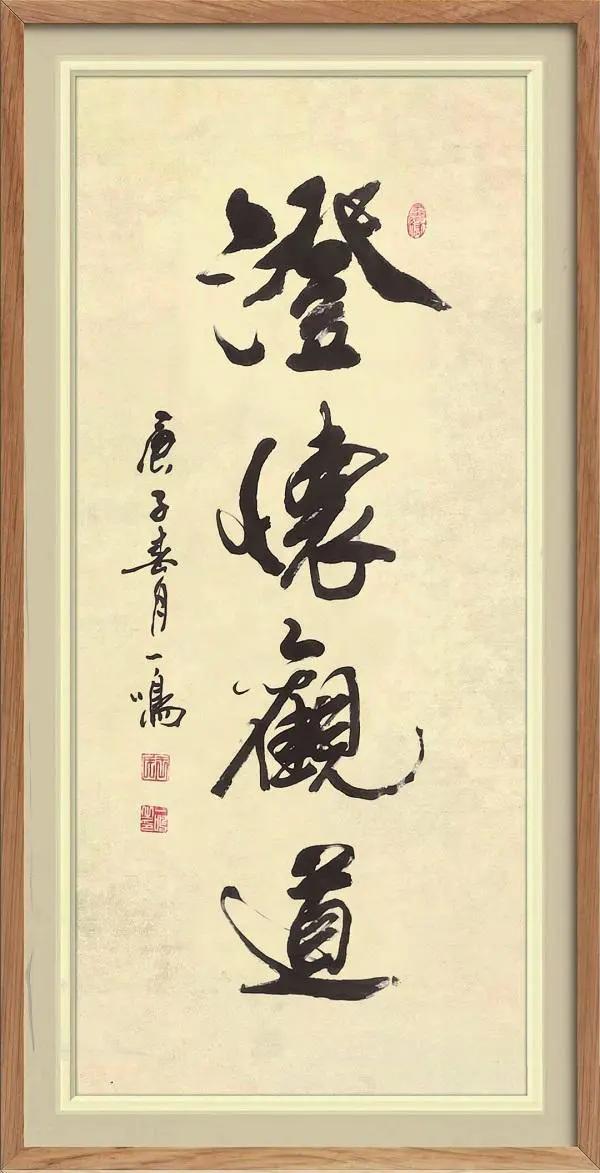 澄懷觀道
庚子春月一鳴